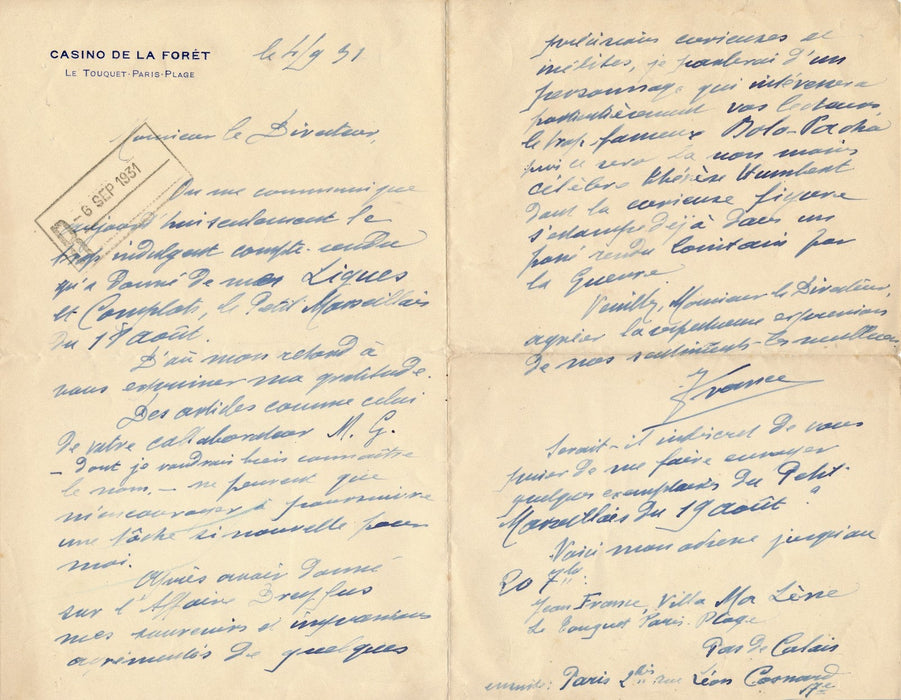 CASINO DE LA FORÊT
LE TOUQUET-PARIS-PLAGE
le 4/9 31
- 6 SEP 1931
Monsieur le Directeur,
On me communique
aujourd'hui seulement le
trop indulgent compte-rendu
qu'a donné de mes Ligues
et Complots, le Petit Marseillais
du 19 août.
D'où mon retard à
vous exprimer ma gratitude.
Des articles comme celui
de votre collaborateur M. G.
- dont je voudrais bien connaître
le nom, - ne peuvent que
m'encourager à poursuivre
une tâche si nouvelle pour
moi.
Après avoir donné
sur l'Affaire Dreyfus
mes souvenirs et impressions
agrémentés de quelques
précisions curieuses et
inédites, je parlerai d'un
personnage qui intéressera
particulièrement vos lecteurs,
le trop fameux Bolo-Pacha
puis ce sera la non moins
célèbre Thérèse Humbert
dont la curieuse figure
s'estompe déjà dans un
passé rendu lointain par
la Guerre
Veuillez, Monsieur le Directeur,
agréer la respectueuse expression
de mes sentiments les meilleurs
JFrance
Serait-il indiscret de vous
prier de me faire envoyer
quelques exemplaires du Petit
Marseillais du 19 août ?
Voici mon adresse jusqu'au
20 7bre
Jean France, Villa Ma Lène
Le Touquet Paris-Plage
Pas de Calais
ensuite : Paris 2bis rue Léon Cosnard